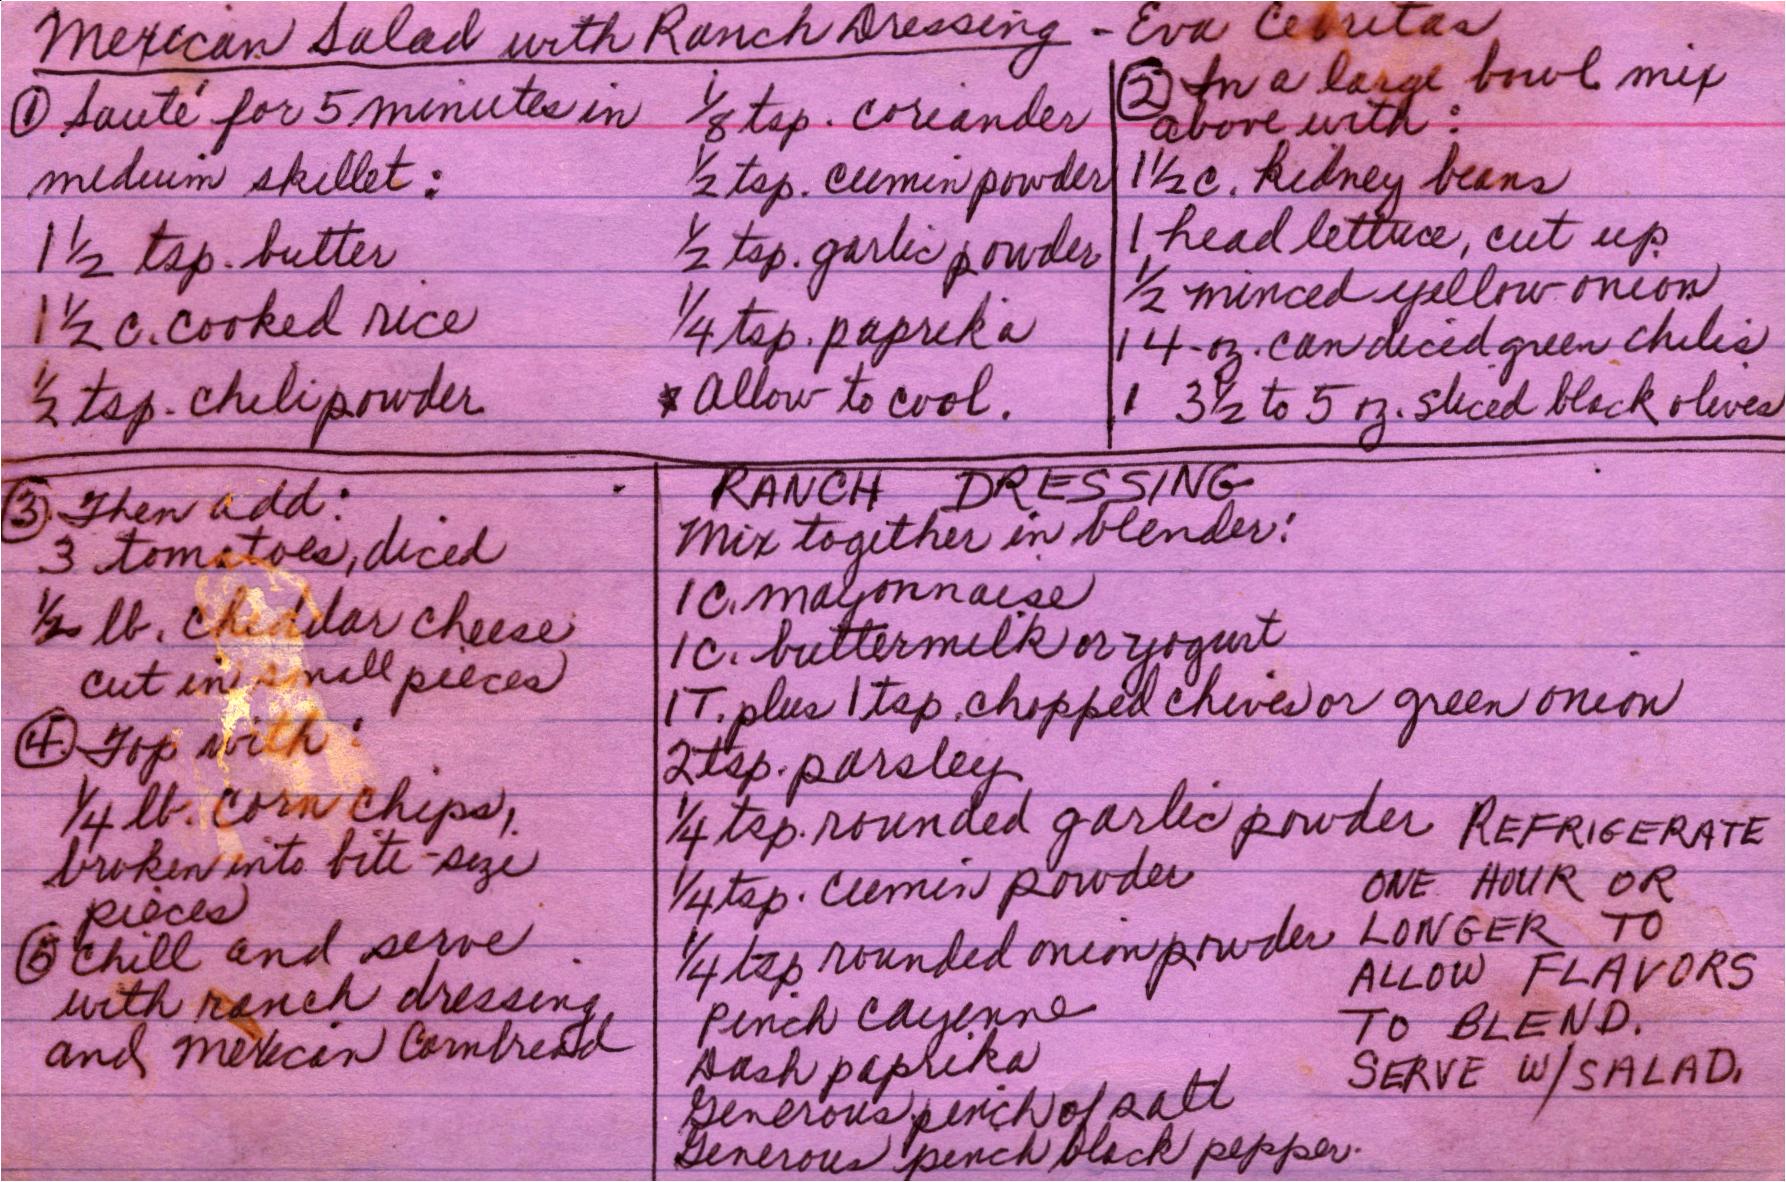 Mexican Salad with Ranch Dressing - Eva Cebritas
① Sauté for 5 minutes in
medium skillet:
1 1/2 tsp. butter
1 1/2 c. cooked rice
1/2 tsp. chili powder
1/8 tsp. coriander
1/2 tsp. cumin powder
1/2 tsp. garlic powder
1/4 tsp. paprika
* Allow to cool.
② In a large bowl mix
above with:
1 1/2 c. kidney beans
1 head lettuce, cut up
1/2 minced yellow onion
1 4-oz. can diced green chilis
1 3 1/2 to 5 oz. sliced black olives
③ Then add:
3 tomatoes, diced
1/2 lb. cheddar cheese
cut in small pieces
④ Top with:
1/4 lb. corn chips,
broken into bite-size
pieces
⑤ Chill and serve
with ranch dressing
and Mexican Cornbread
RANCH DRESSING
Mix together in blender:
1 c. mayonnaise
1 c. buttermilk or yogurt
1 T. plus 1 tsp. chopped chives or green onion
2 tsp. parsley
1/4 tsp. rounded garlic powder
1/4 tsp. cumin powder
1/4 tsp rounded onion powder
Pinch cayenne
Dash paprika
Generous pinch of salt
Generous pinch black pepper.
REFRIGERATE
ONE HOUR OR
LONGER TO
ALLOW FLAVORS
TO BLEND.
SERVE W/SALAD.